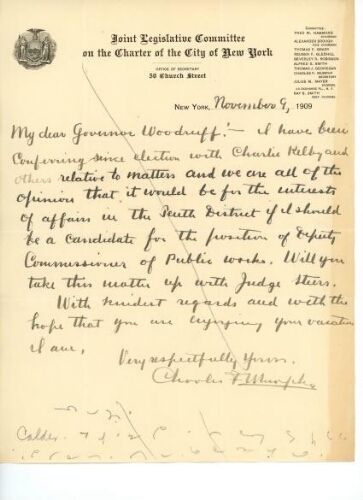 Joint Legislative Committee
on the Charter of the City of New York
OFFICE OF SECRETARY
50 Church Street
COMMITTEE:
FRED W. HAMMOND
CHAIRMAN
ALEXANDER BROUGH
VICE-CHAIRMAN
BEVERLEY R. ROBINSON
ALFRED E. SMITH
CHARLES F. MURPHY
SECRETARY
JULIUS M. MAYER
COUNSEL
RAY B. SMITH
NEW YORK, November 9, 1909
My dear Governor Woodruff:- I have been
conferring since election with Charlie Kelby and
others relative to matters and we are all of the
opinion that it would be for the interests
of affairs in the Tenth District if I should
be a candidate for the position of Deputy
Commissioner of Public Works. Will you
take this matter up with Judge Steers.
With kindest regards and with the
hope that you are enjoying your vacation
I am,
Very respectfully yours,
Charles F. Murphy
Calder